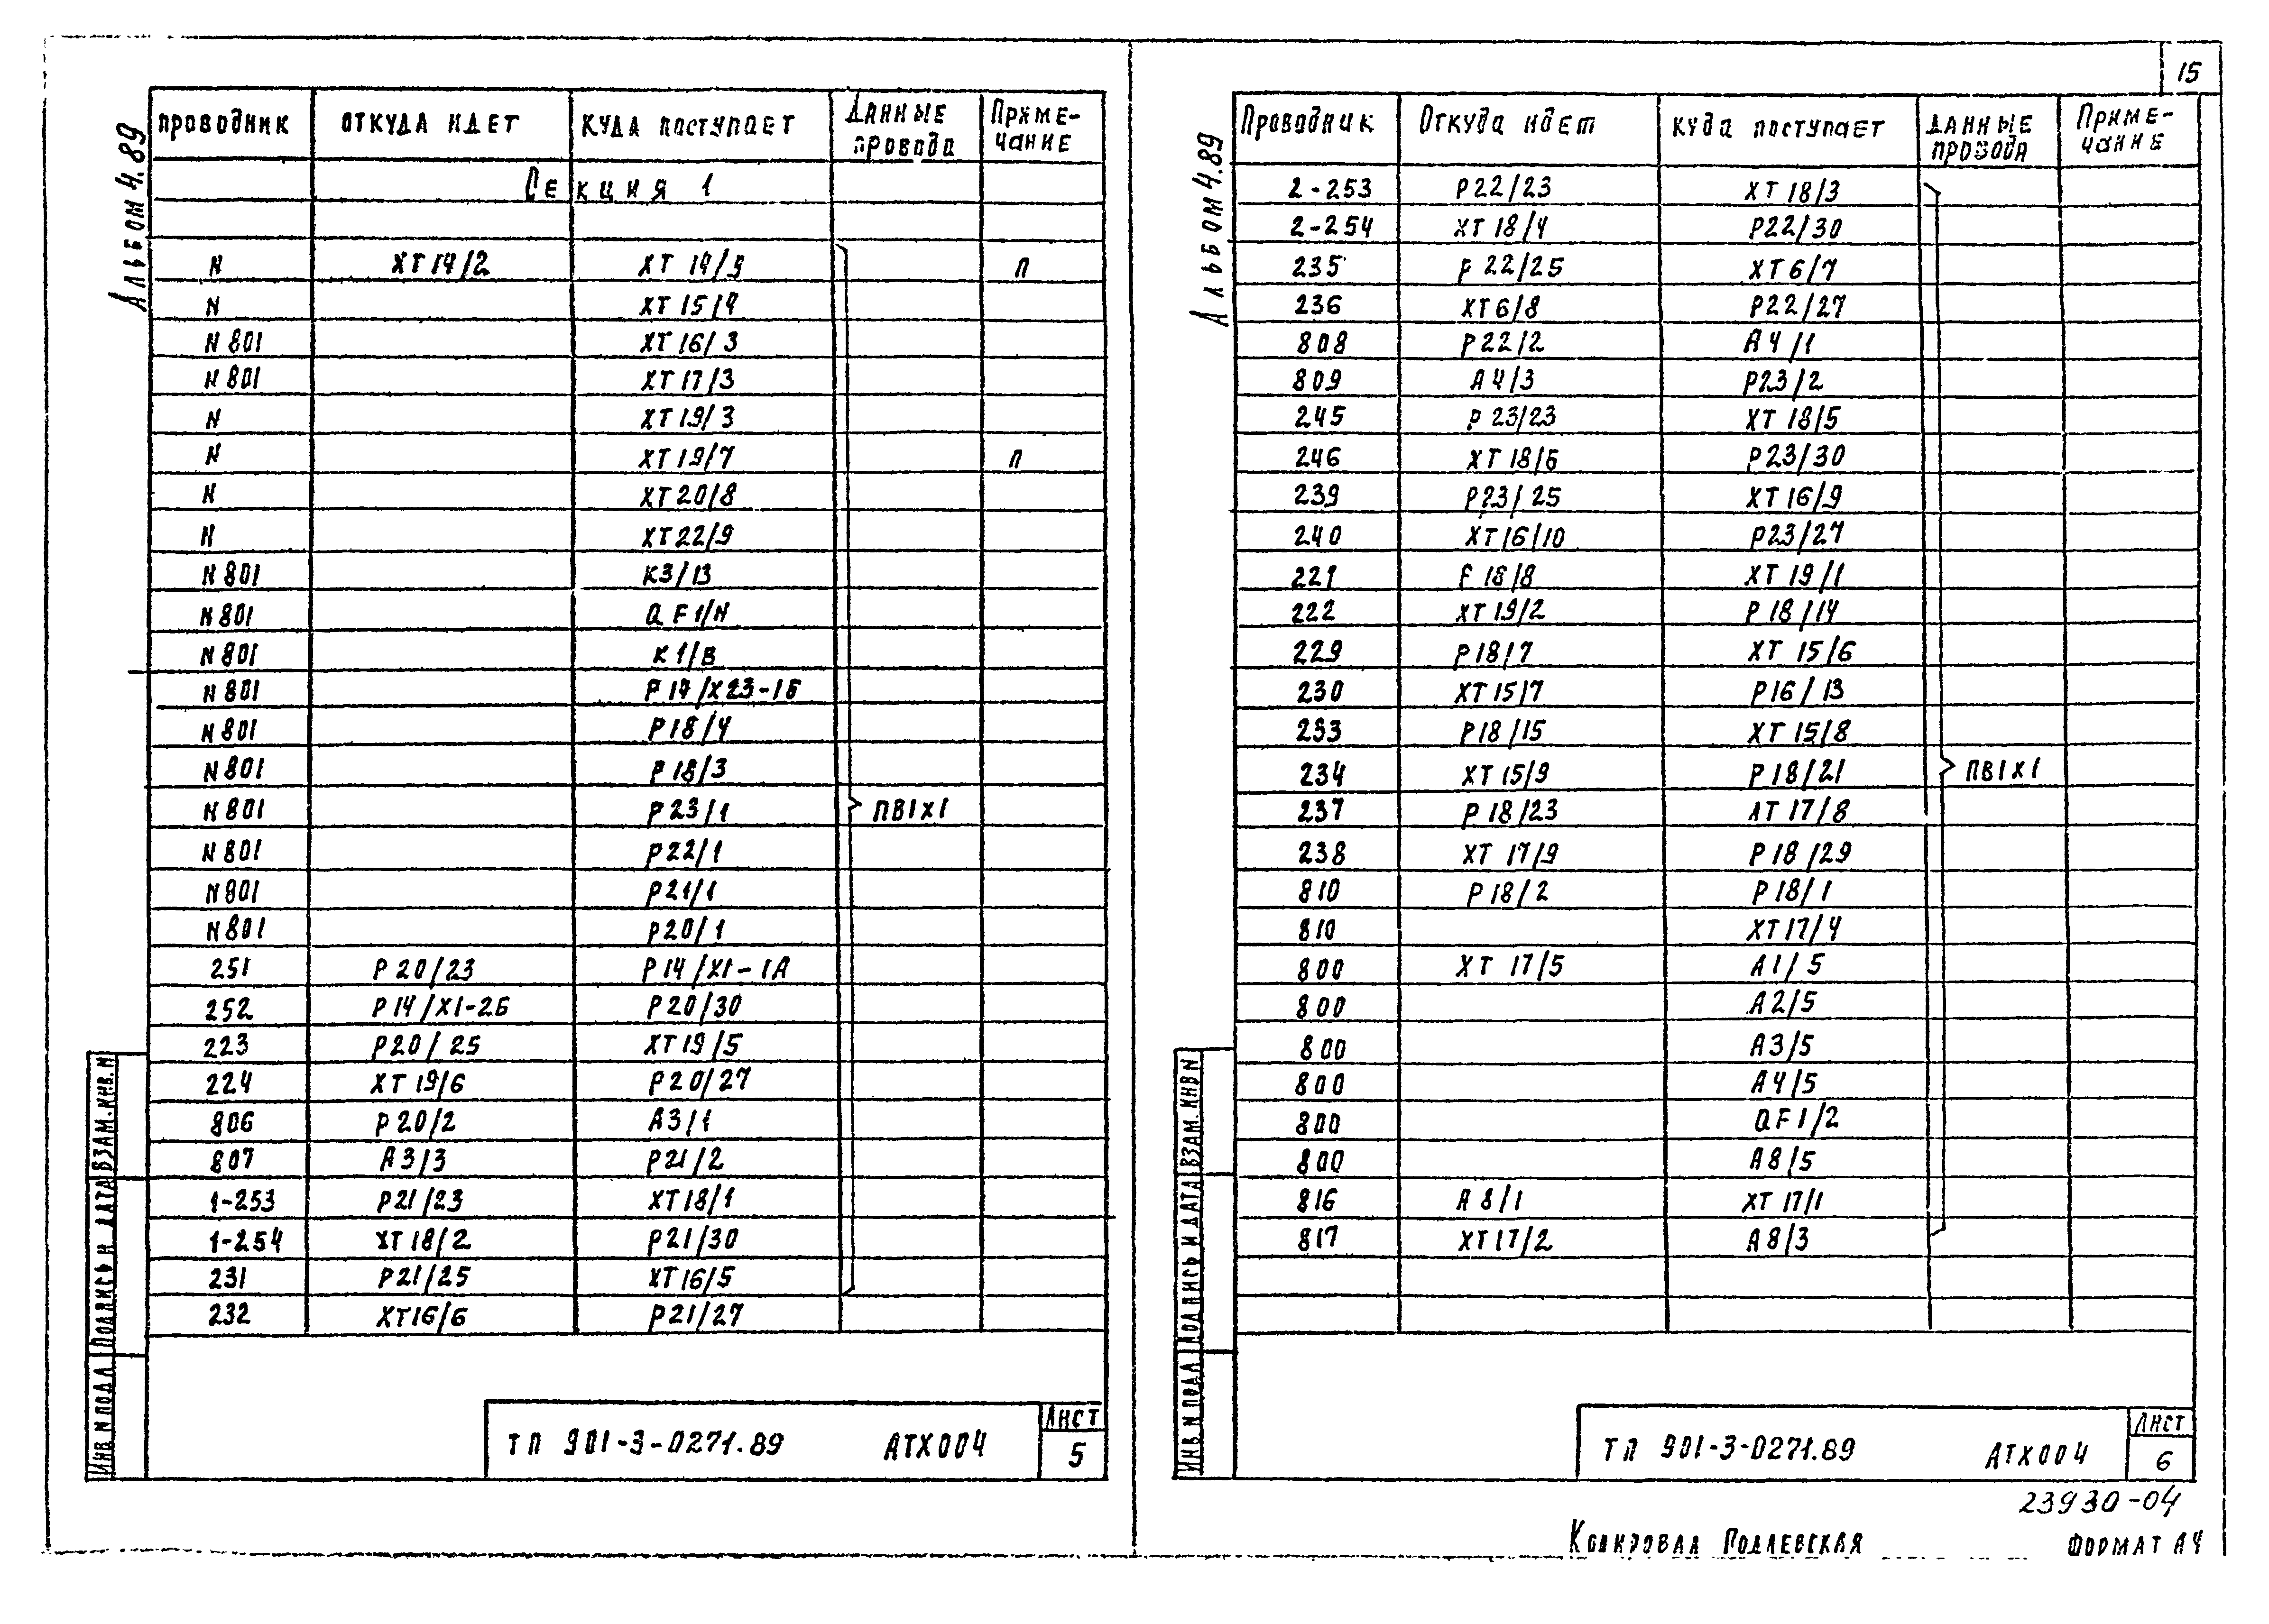 15
Альбом 4.89
Проводник Откуда идет Куда поступает Данные провода Примечание
Секция 1
N XT14/2 XT14/9 П
N XT15/4
N801 XT16/3
N801 XT17/3
N XT19/3
N XT19/7 П
N XT20/8
N XT22/9
N801 K3/13
N801 QF1/N
N801 K1/B
N801 P14/X23-1Б
N801 P18/4
N801 P18/3
N801 P23/1 ПВ1Х1
N801 P22/1
N801 P21/1
N801 P20/1
251 P20/23 P14/X1-1A
252 P14/X1-2Б P20/30
223 P20/25 XT19/5
224 XT19/6 P20/27
806 P20/2 A3/1
807 A3/3 P21/2
1-253 P21/23 XT18/1
1-254 XT18/2 P21/30
231 P21/25 XT16/5
232 XT16/6 P21/27
Инв N подл Подпись и дата Взам. инв. N
ТП 901-3-0271.89 АТХ004 Лист 5
Альбом 4.89
Проводник Откуда идет Куда поступает Данные провода Примечание
2-253 P22/23 XT18/3
2-254 XT18/4 P22/30
235 P22/25 XT6/7
236 XT6/8 P22/27
808 P22/2 A4/1
809 A4/3 P23/2
245 P23/23 XT18/5
246 XT18/6 P23/30
239 P23/25 XT16/9
240 XT16/10 P23/27
221 P18/8 XT19/1
222 XT19/2 P18/14
229 P18/7 XT15/6
230 XT15/7 P16/13
233 P18/15 XT15/8
234 XT15/9 P18/21 ПВ1Х1
237 P18/23 XT17/8
238 XT17/9 P18/29
810 P18/2 P18/1
810 XT17/4
800 XT17/5 A1/5
800 A2/5
800 A3/5
800 A4/5
800 QF1/2
800 A8/5
816 A8/1 XT17/1
817 XT17/2 A8/3
Инв N подл Подпись и дата Взам. инв N
ТП 901-3-0271.89 АТХ004 Лист 6
23930-04
Копировал Подлевская Формат А4